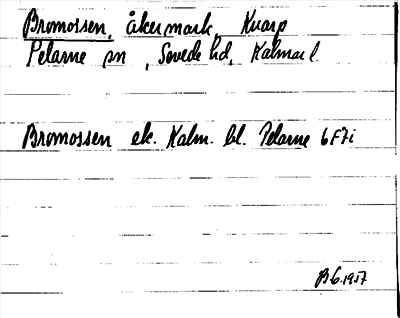 Bromossen, åkermark, Knarp
Pelarne sn, Sevede hd, Kalmar l.
Bromossen ek. Kalm. bl. Pelarne 6F7i
B.G. 1957